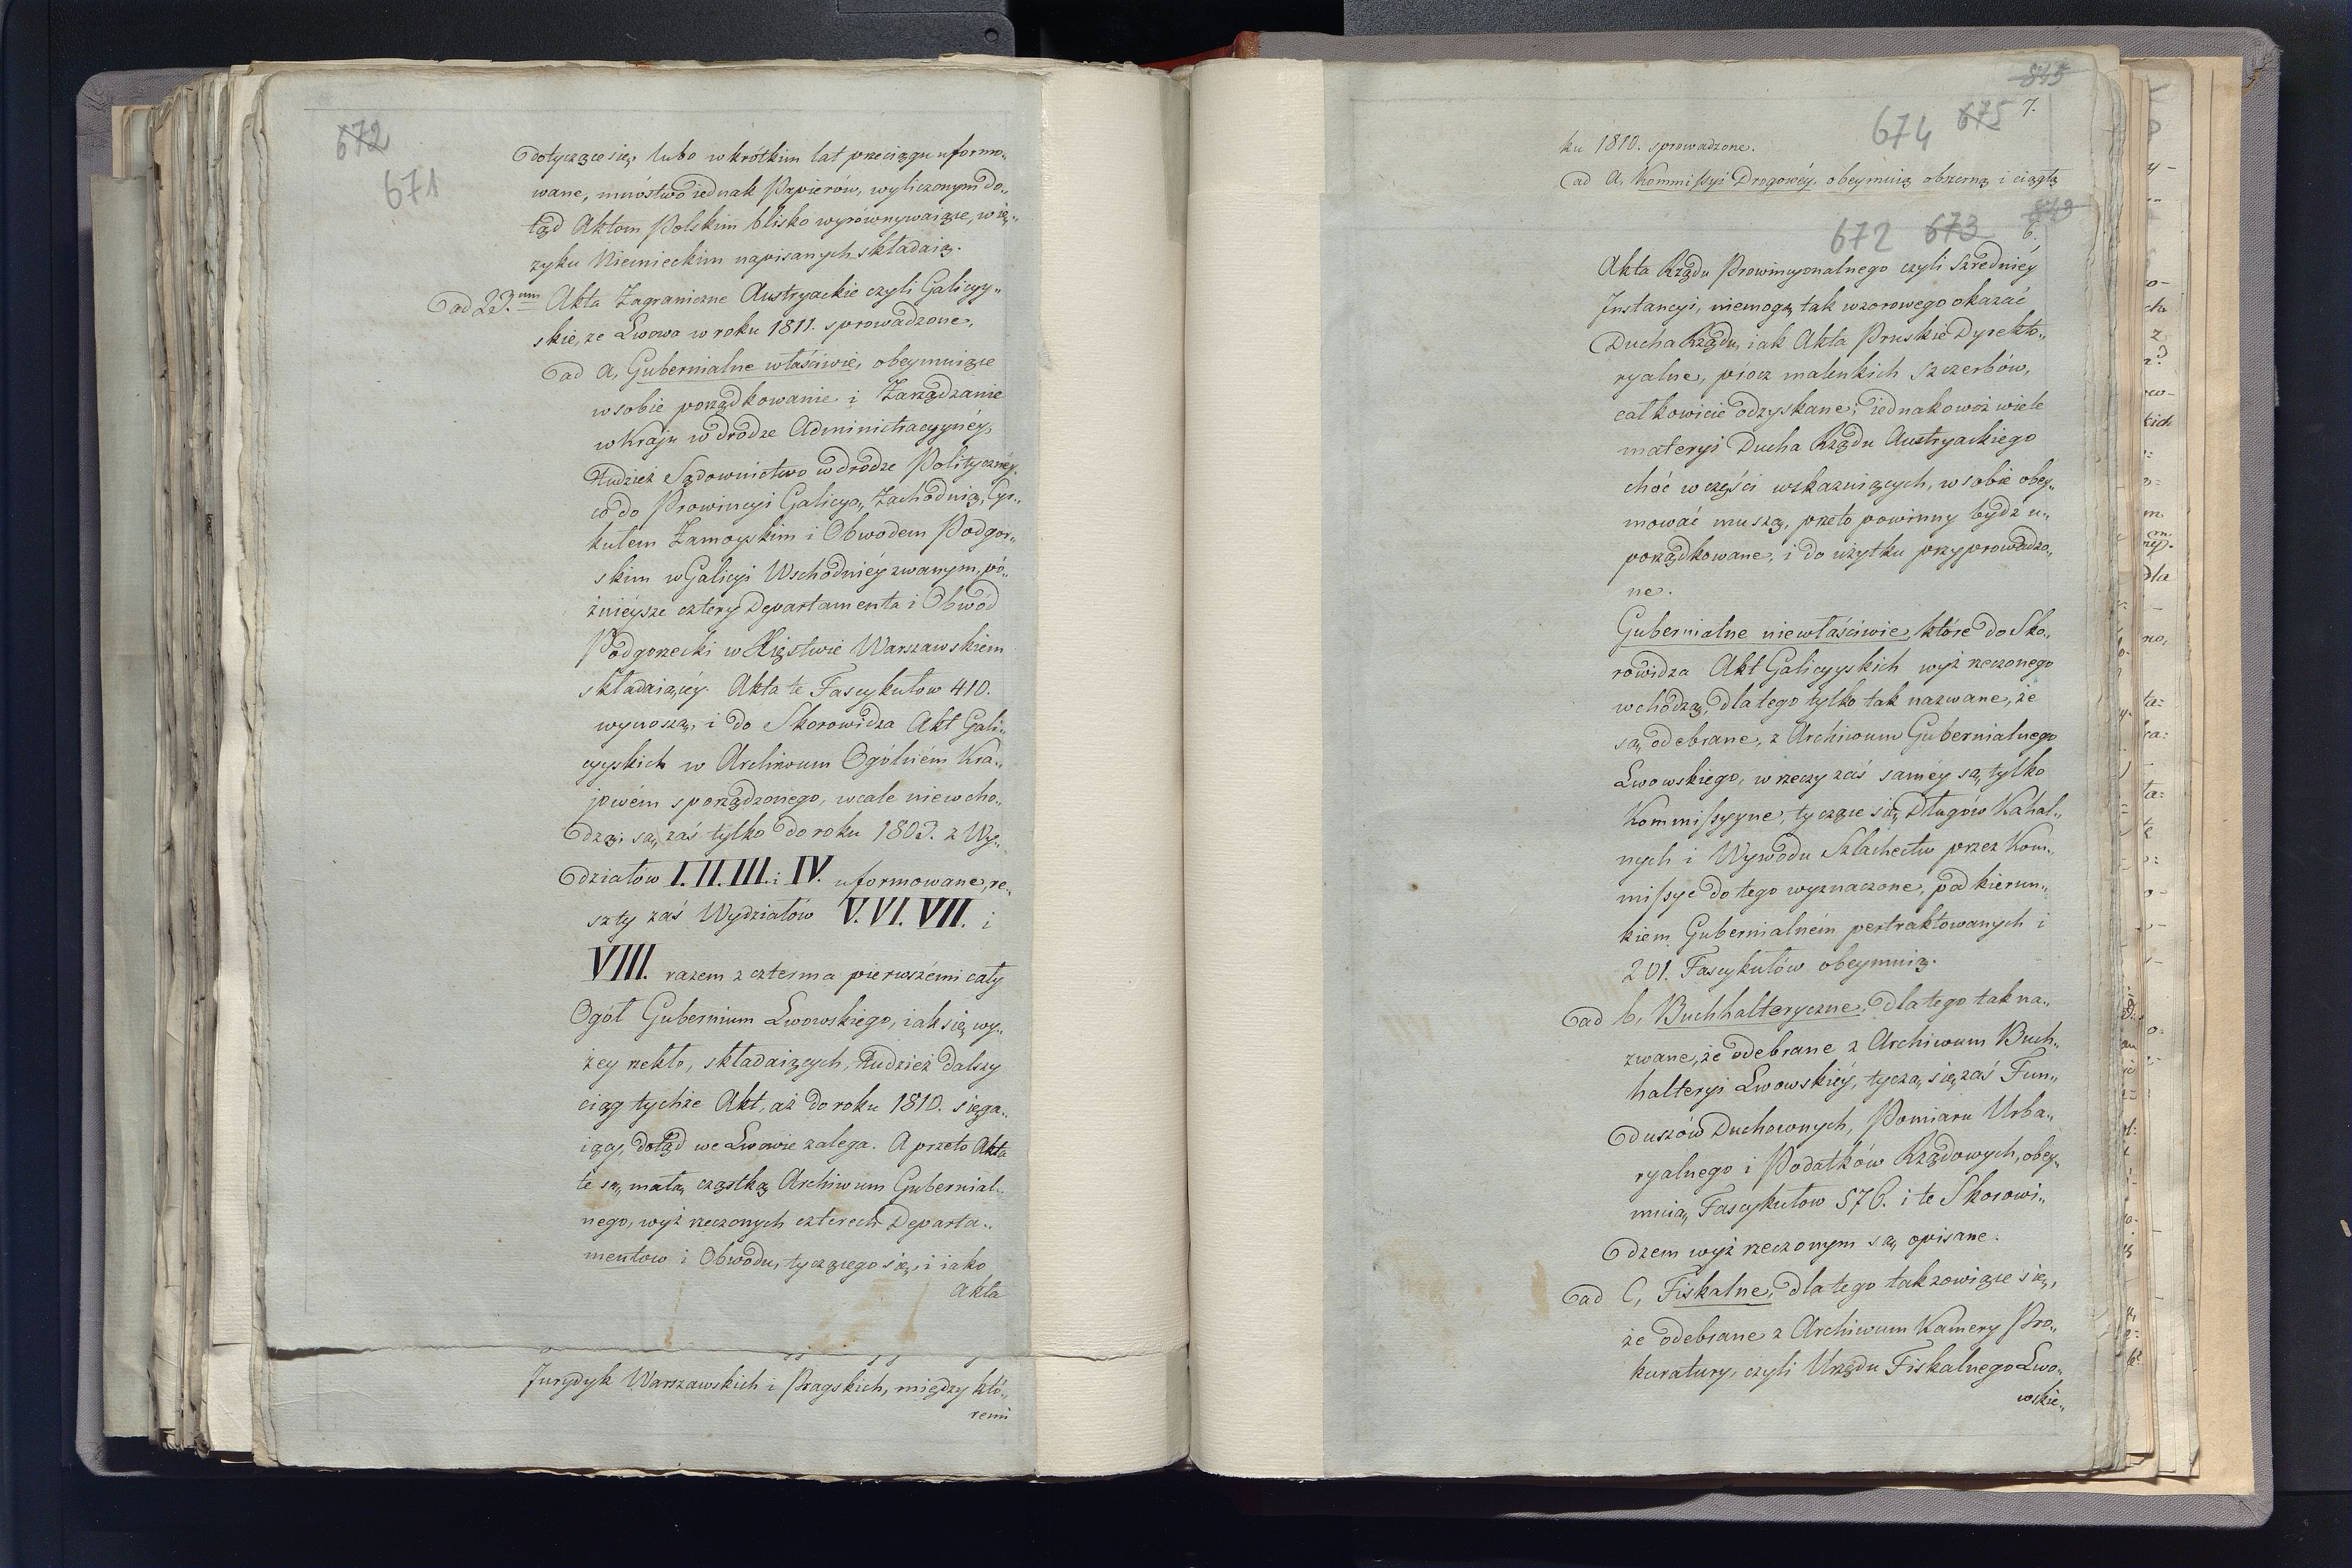 672
671
dotyczące się, lubo w krótkim lat przeciągu uformo„
wane, mnóstwo iednak Papierów, wyliczonym do„
tąd Aktom Polskim blisko wyrównywaiące, w ię„
zyku Niemieckim napisanych składaią.
ad 23.um Akta Zagraniczne Austryackie czyli Galicyy„
skie, ze Lwowa w roku 1811. sprowadzone,
ad a, Gubernialne właściwie, obeymuiące
w sobie porządkowanie i Zarządzanie
w Kraju w drodze Administracyyney,
tudzież Sądownictwo w drodze Polityczney.
co do Prowincyi Galicyą, Zachodnią, Cyr„
kułem Zamoyskim i Obwodem Podgor„
skim w Galicyi Wschodniéy zwanym, pó„
źnieysze cztery Departamenta i Obwód
Podgorzecki w Xięstwie Warszawskiem
składaiącéy. Akta te Fascykułow 410.
wynoszą, i do Skorowidza Akt Gali„
cyyskich w Archiwum Ogólném Kra„
jowém sporządzonego, wcale niewcho„
dzą; są zaś tylko do roku 1803. z Wy„
działów I. II. III. i IV. uformowane, re„
szty zaś Wydziałów V. VI. VII. i
VIII. razem z czterma pierwszémi cały
Ogół Gubernium Lwowskiego, iak się wy„
żey rzekło, składaiących, tudzież dalszy
ciąg tychże Akt, aż do roku 1810. sięga„
iący, dotąd we Lwowie zalega. A przeto Akta
te są małą cząstką Archiwum Gubernial„
nego, wyż rzeczonych czterech Departa„
mentow i Obwodu, tyczącego się, i iako
Akta
Jurydyk Warszawskich i Pragskich, między któ„
remi
845
7.
674 675
ku 1810. sprowadzone.
ad a, Kommissyi Drogowéy, obeymuią obszerną i ciągłą
843
6.
672 673
Akta Rządu Prowincyonalnego czyli Szredniéy
Instancyi, niemogą tak wzorowego okazać
Ducha Rządu, iak Akta Pruskie Dyrekto„
ryalne, prócz malenkich szczerbów,
całkowicie odzyskane; iednakowoż wiele
materyi Ducha Rządu Austryackiego
choć w części wskazuiących, w sobie obey„
mować muszą, przeto powinny bydź u„
porządkowane, i do użytku przyprowadzo„
ne.
Gubernialne niewłaściwie, które do Sko„
rowidza Akt Galicyyskich wyż rzeczonego
wchodzą, dlatego tylko tak nazwane, że
są odebrane, z Archiwum Gubernialnego
Lwowskiego, w rzeczy zaś saméy są tylko
Kommissyyne, tyczące się Długów Kahal„
nych i Wywodu Szlachectw przez Kom„
missye do tego wyznaczone, pod kierun„
kiem Gubernialném pertraktowanych i
201. Fascykułów obeymuią.
ad b, Buchhalteryczne, dlatego tak na„
zwane, że odebrane z Archiwum Buch„
halteryi Lwowskiéy, tyczą się zaś Fun„
duszów Duchownych, Pomiaru Urba„
ryalnego i Podatków Rządowych, obey„
muią Fascykułow 576. i te Skorowi„
dzem wyż rzeczonym są opisane.
ad C, Fiskalne, dlatego tak zowiące się,
że odebrane z Archiwum Kamery Pro„
kuratury, czyli Urzędu Fiskalnego Lwo„
wskie„